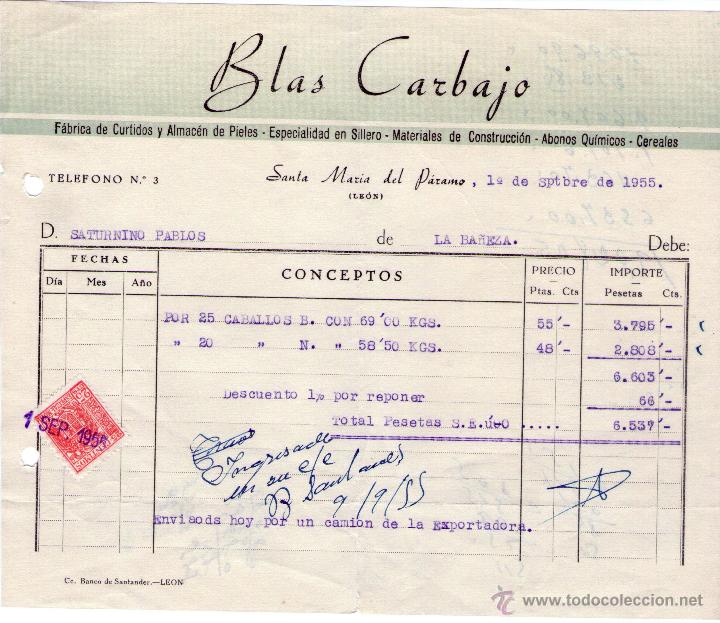 Blas Carbajo
Fábrica de Curtidos y Almacén de Pieles - Especialidad en Sillero - Materiales de Construcción - Abonos Químicos - Cereales
TELEFONO N.º 3
Santa Maria del Páramo, 1º de Sptbre de 1955.
(LEÓN)
D. SATURNINO PABLOS de LA BAÑEZA. Debe:
FECHAS CONCEPTOS PRECIO IMPORTE
Día Mes Año Ptas. Cts Pesetas Cts.
POR 25 CABALLOS B. CON 69´00 KGS. 55´- 3.795´-
" 20 " N. " 58´50 KGS. 48´- 2.808´-
6.603´-
Descuento 1% por reponer 66´-
Total Pesetas S.E.úoO ..... 6.537´-
1 SEP. 1955
Ingresado
en su c/c
B Santander
9/9/55
Envisods hoy por un camion de la Exportadora.
Cc. Banco de Santander.—LEON
www.todocoleccion.net